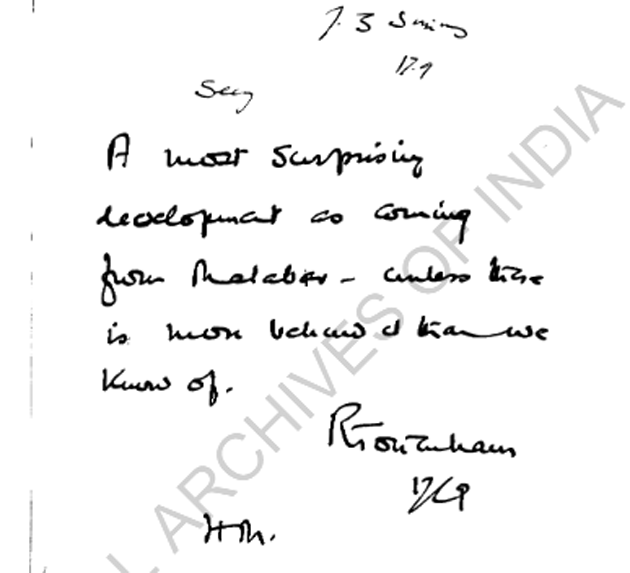 17.9
Secy
A most surprising
development as coming
from Malabar – unless there
is more behind it than we
know of.
R Tottenham
17/9
H.M.
L ARCHIVES OF INDIA